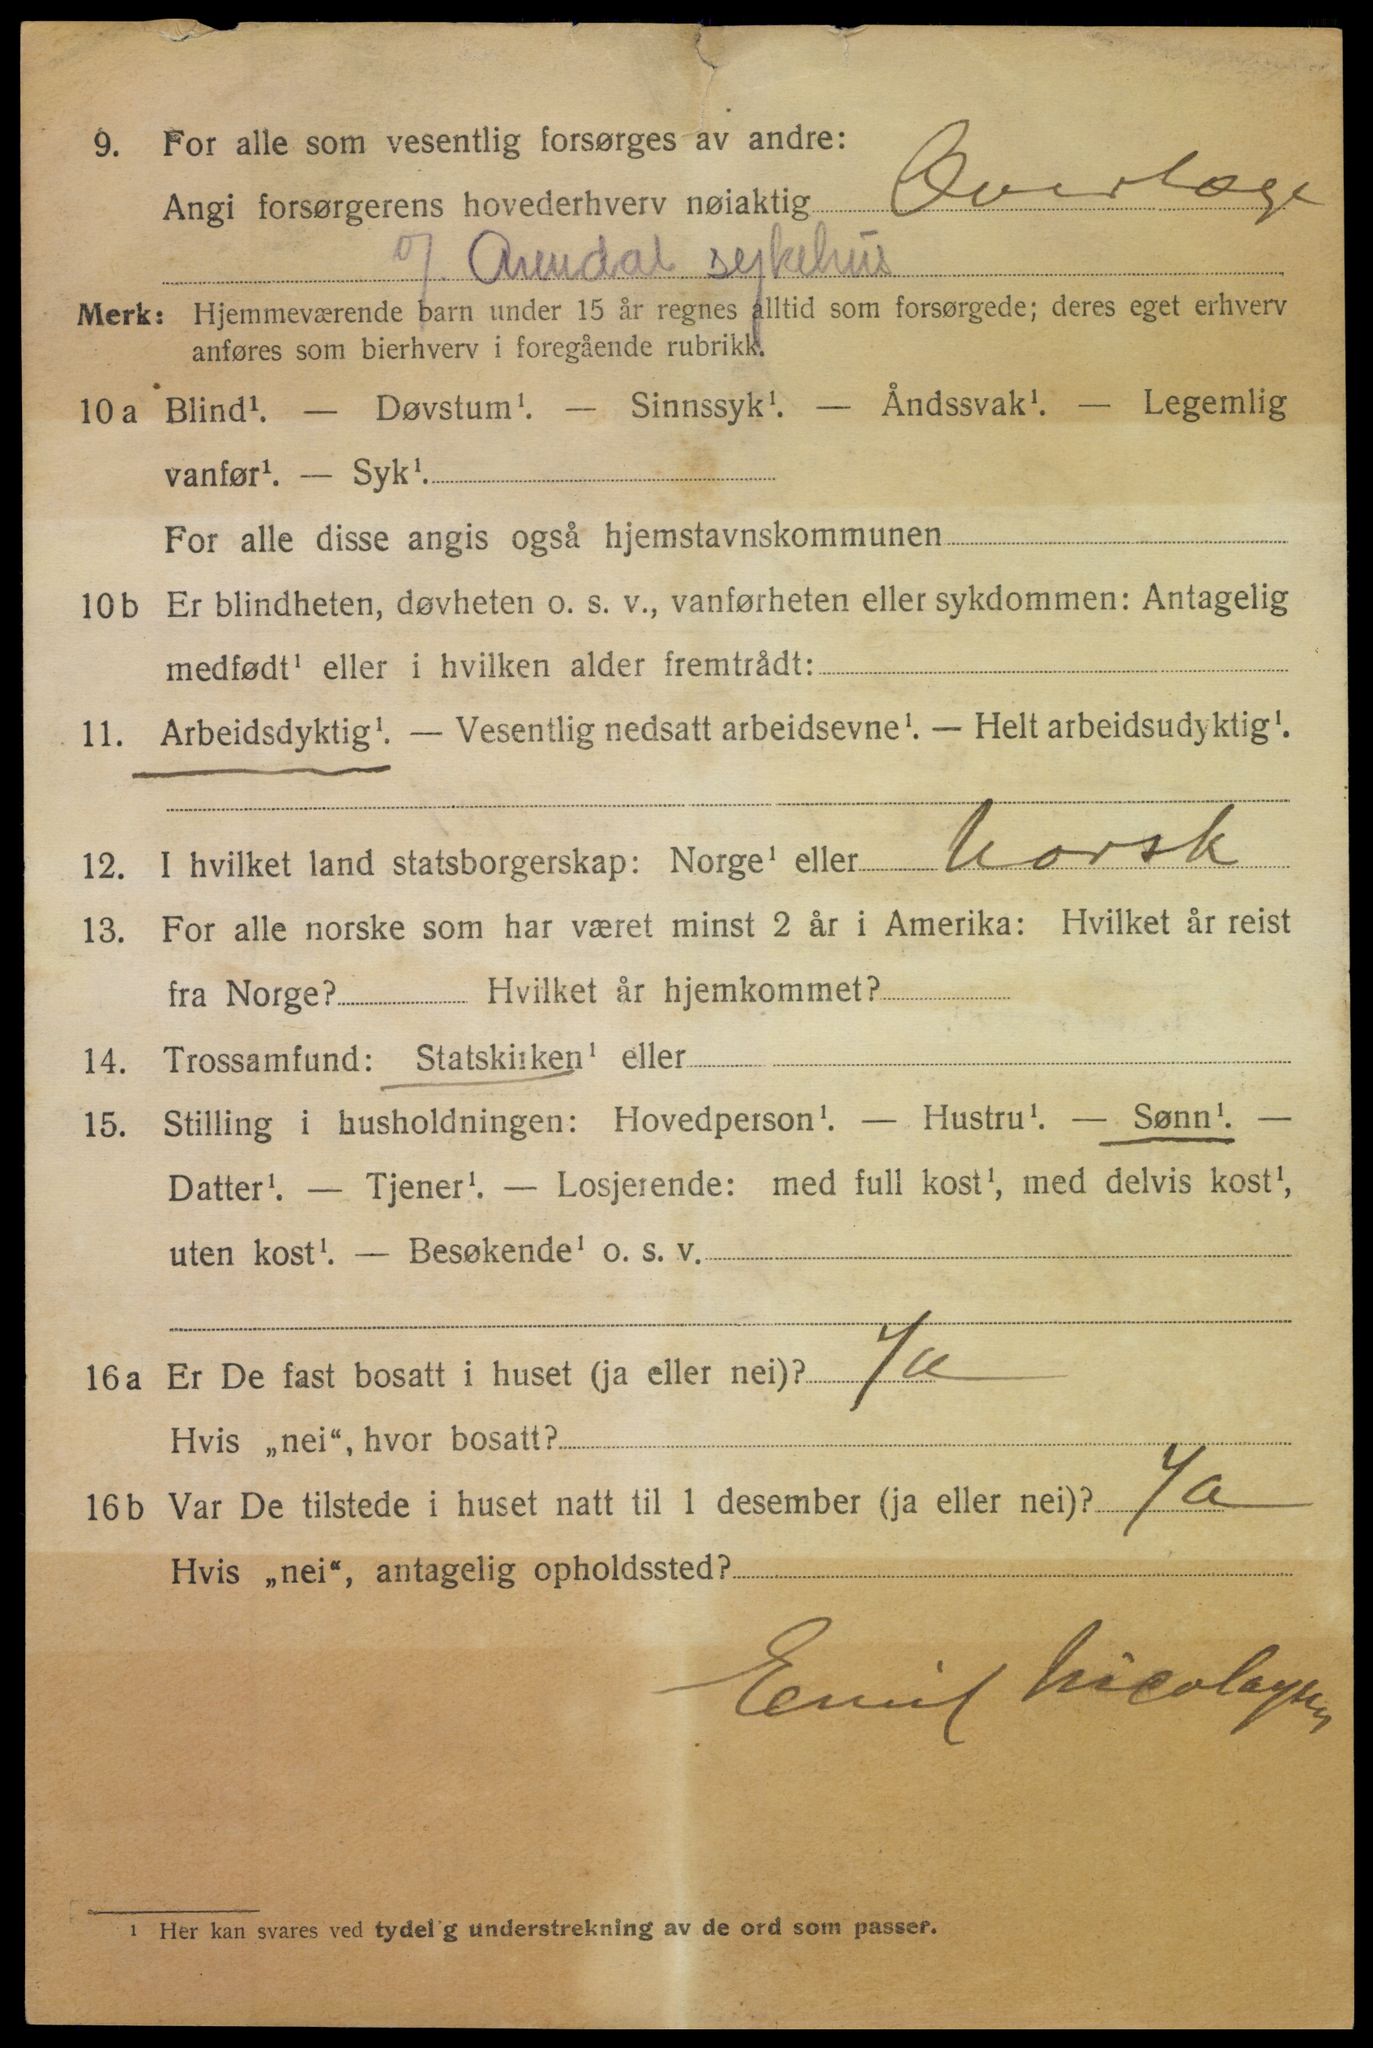 9. For alle som vesentlig forsørges av andre:
Angi forsørgerens hovederhverv nøiaktig Overlæge
v/ Arendal sykehus
Merk: Hjemmeværende barn under 15 år regnes alltid som forsørgede; deres eget erhverv
anføres som bierhverv i foregående rubrikk.
10 a Blind¹. — Døvstum¹. — Sinnssyk¹. — Åndssvak¹. — Legemlig
vanfør¹. — Syk¹.
For alle disse angis også hjemstavnskommunen
10 b Er blindheten, døvheten o. s. v., vanførheten eller sykdommen: Antagelig
medfødt¹ eller i hvilken alder fremtrådt:
11. Arbeidsdyktig¹. — Vesentlig nedsatt arbeidsevne¹. — Helt arbeidsudyktig¹.
12. I hvilket land statsborgerskap: Norge¹ eller Norsk
13. For alle norske som har været minst 2 år i Amerika: Hvilket år reist
fra Norge? Hvilket år hjemkommet?
14. Trossamfund: Statskirken¹ eller
15. Stilling i husholdningen: Hovedperson¹. — Hustru¹. — Sønn¹. —
Datter¹. — Tjener¹. — Losjerende: med full kost¹, med delvis kost¹,
uten kost¹. — Besøkende¹ o. s. v.
16 a Er De fast bosatt i huset (ja eller nei)? Ja
Hvis „nei“, hvor bosatt?
16 b Var De tilstede i huset natt til 1 desember (ja eller nei)? Ja
Hvis „nei“, antagelig opholdssted?
Emil Nicolaysen
¹ Her kan svares ved tydelig understrekning av de ord som passer.